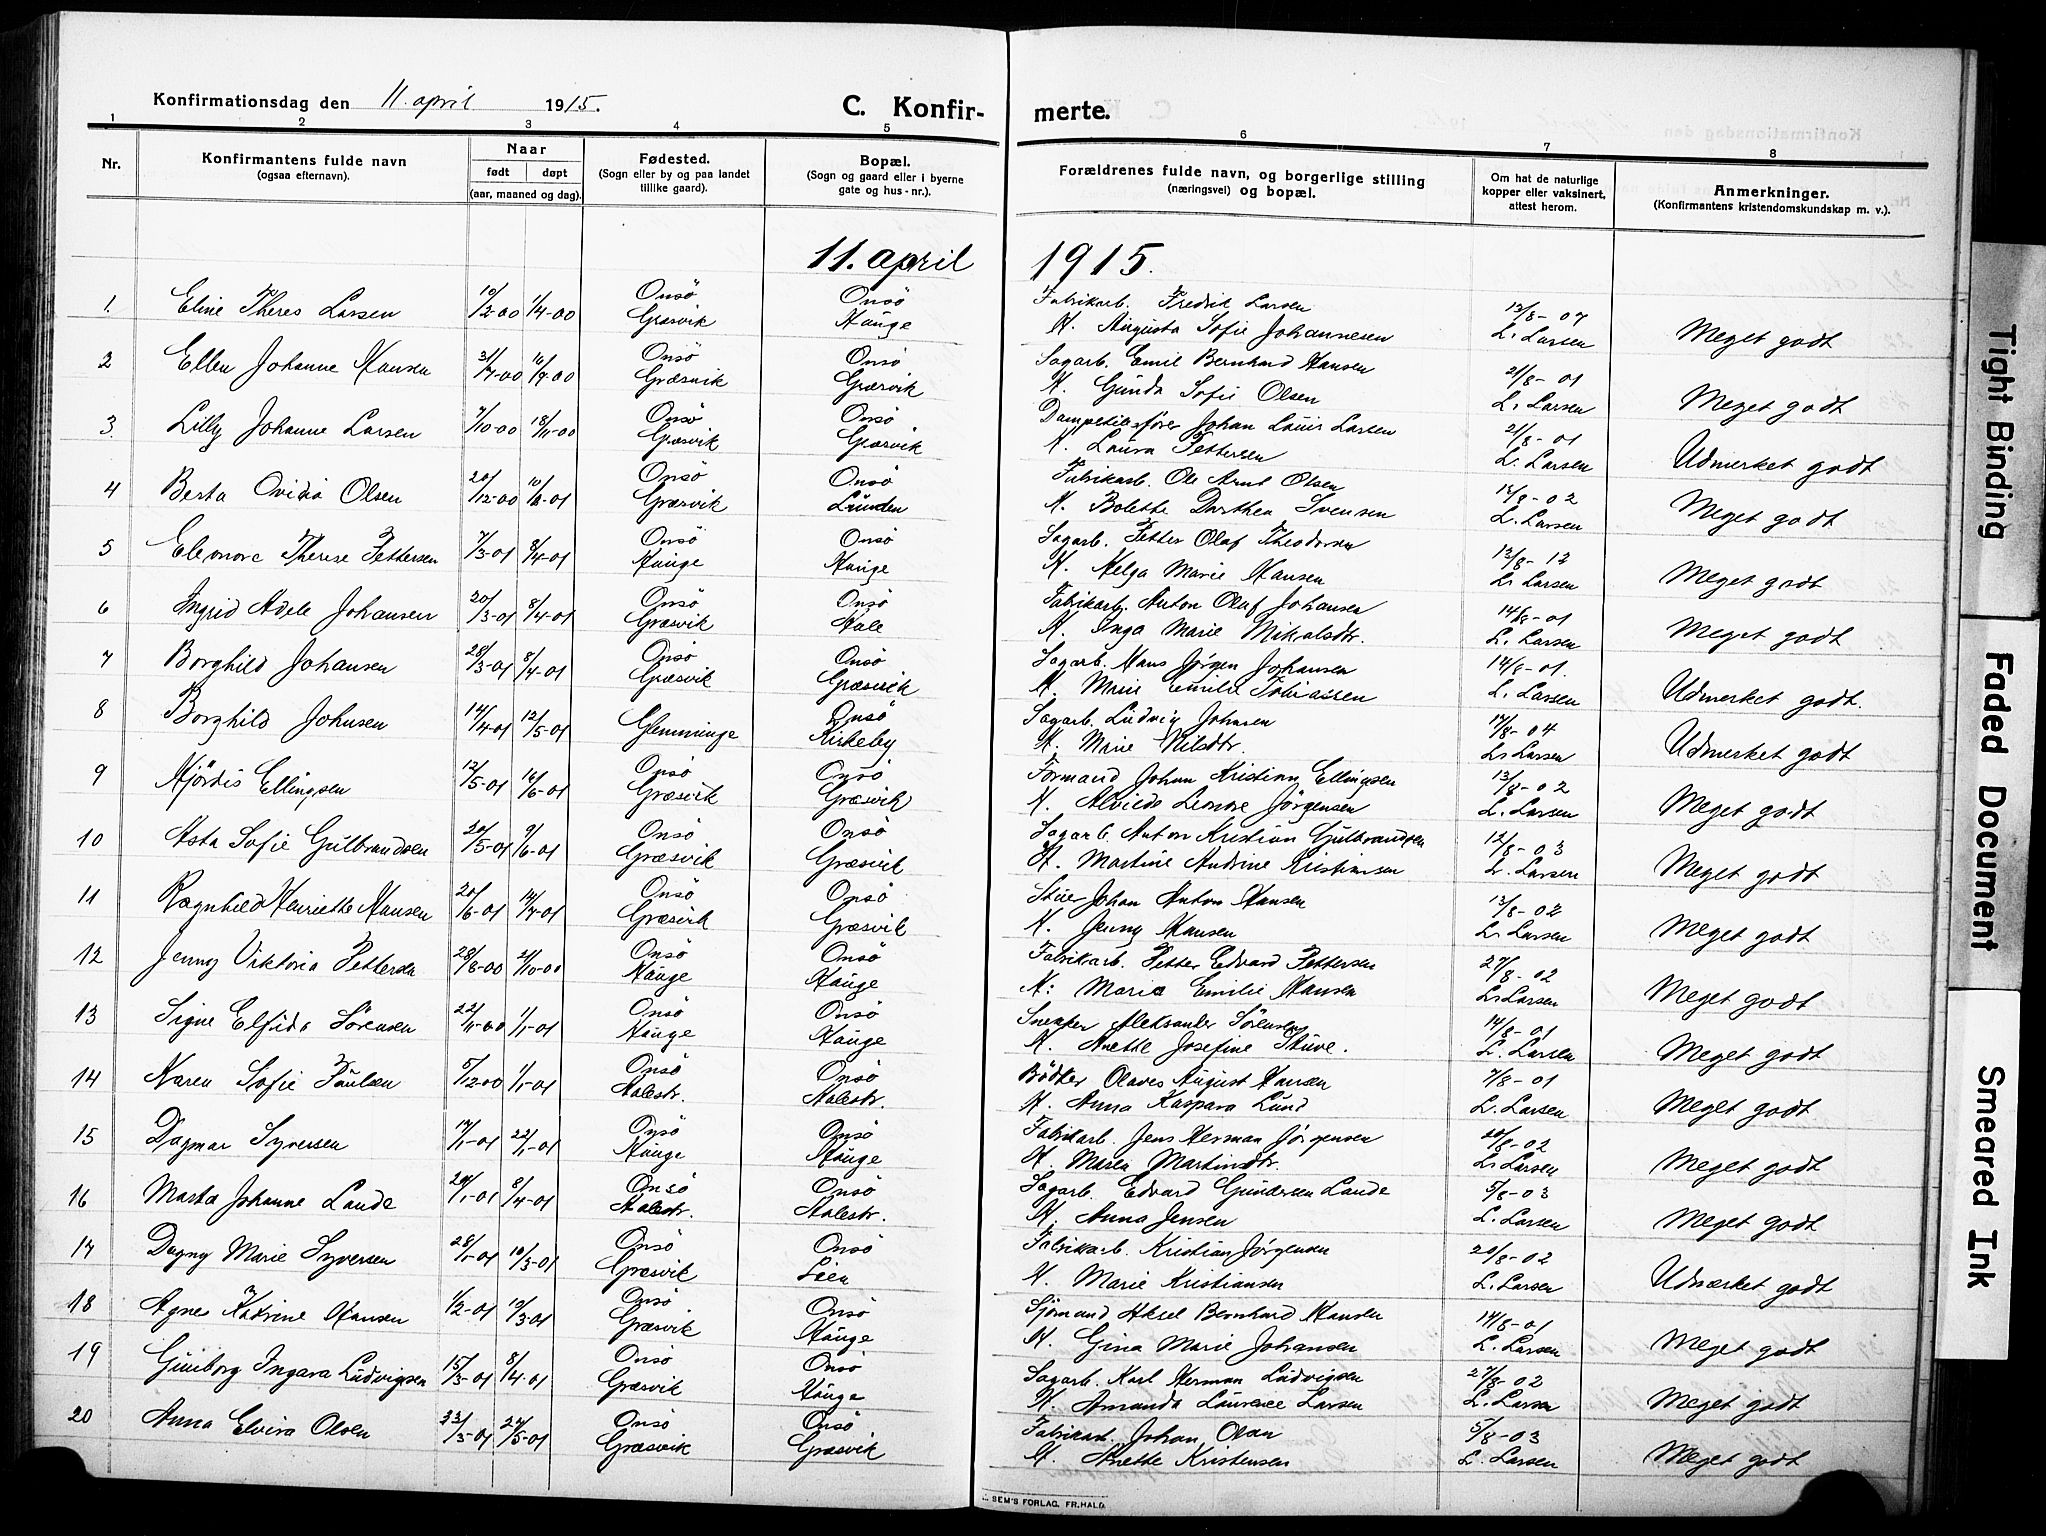 Konfirmationsdag den 11. april 1915. C. Konfir- merte.
1 2 3 4 5 6 7 8
Nr. Konfirmantens fulde navn (ogsaa efternavn). Naar født døpt (aar, maaned og dag). Fødested. (Sogn eller by og paa landet tillike gaard). Bopæl. (Sogn og gaard eller i byerne gate og hus-nr.). Forældrenes fulde navn, og borgerlige stilling (næringsvei) og bopæl. Om hat de naturlige kopper eller vaksinert, attest herom. Anmerkninger. (Konfirmantens kristendomskundskap m. v.).
11. april 1915.
1. Eline Theres Larsen 10/2-00 1/4-00 Onsö Græsvik Onsö Hauge Fabrikarb. Fredrik Larsen H. Augusta Sofie Johannesen 13/8-07 L. Larsen Meget godt
2 Ellen Johanne Hansen 31/7-00 16/9-00 Onsö Græsvik Onsö Græsvik Sagarb. Emil Bernhard Hansen H. Gunda Sofie Olsen 21/8-01 L. Larsen Meget godt
3. Lilly Johanne Larsen 7/10-00 18/11-00 Onsö Græsvik Onsö Græsvik Johan Louis Larsen H. Laura Pettersen 21/8-01 L. Larsen Udmerket godt
4 Berta Ovidia Olsen 20/12-00 10/2-01 Onsö Græsvik Onsö Lunden Fabrikarb. Ole Arnt Olsen H. Bolette Dorthea Svensen 14/8-02 L. Larsen Meget godt
5 Eleonore Therese Pettersen 7/3-01 8/4-01 Onsö Hauge Onsö Hauge Sagarb. Petter Olaf Theodorsen H. Helga Marie Hansen 13/8-12 L. Larsen Meget godt
6 Ingrid Adele Johansen 20/3-01 8/4-01 Onsö Græsvik Onsö Hale Fabrikarb. Anton Olaf Johansen H. Inga Marie Nikolsdtr. 14/8-01 L. Larsen Meget godt
7 Borghild Johansen 28/3-01 8/4-01 Onsö Græsvik Onsö Græsvik Sagarb. Hans Jørgen Johansen H. Marie Emilie Tobiassen 14/8-01. L. Larsen Udmerket godt.
8 Borghild Johnsen 14/4-01 12/5-01 Glemminge Onsö Kirkeby Sagarb. Ludvig Johnsen H. Marie Nilsdtr. 17/8-04 L. Larsen Udmerket godt
9 Hjördis Ellingsen 12/5-01 16/6-01 Onsö Græsvik Onsö Græsvik Formand Johan Kristian Ellingsen H. Leonore Jörgensen 13/8-02 L. Larsen Meget godt
10 Asta Sofie Gulbrandsen 20/5-01 9/6-01 Onsö Græsvik Onsö Græsvik Sagarb. Anton Kristian Gulbrandsen H. Martine Andrine Kristiansen 12/8-03 L. Larsen Meget godt
11 Ragnhild Henriette Hansen 20/6-01 14/7-01 Onsö Græsvik Onsö Græsvik Johan Anton Hansen H. Jenny Hansen 13/8-02 L. Larsen Meget godt
12 Jenny Viktoria Pettersen 28/8-00 21/10-00 Onsö Hauge Onsö Hauge Fabrikarb. Petter Edvard Pettersen H: Marie Emilie Hansen 27/8-02 L. Larsen Meget godt
13 Signe Elfida Sörensen 22/11-00 1/1-01 Onsö Hauge Onsö Hauge Snekker Aleksander Sörensen H. Anette Josefine Stuve. 14/8-01 L. Larsen Meget godt
14 Karen Sofie Paulsen 5/12-00 1/1-01 Onsö Halestr. Onsö Halestr. Bödker Olaves August Hansen H. Anna Kaspara Lund 7/8-01 L. Larsen Meget godt
15 Dagmar Syversen 14/1-01 22/1-01 Onsö Hauge Onsö Hauge Fabrikarb. Jens Herman Jörgensen H. Maren Martinsdtr. 20/8-02 L. Larsen Meget godt
16 Marta Johanne Lande 24/1-01 8/4-01 Onsö Halestr. Onsö Halestr. Sagarb. Edvard Gundersen Lande H. Anna Jensen 5/8-03 L. Larsen Meget godt
17 Dagny Marie Syversen 28/1-01 10/3-01 Onsö Græsvik Onsö Lien Fabrikarb. Kristian Jörgensen H. Marie Kristiansen 20/8-02 L. Larsen Udmerket godt
18 Agnes Katrine Hansen 1/2-01 10/3-01 Onsö Græsvik Onsö Hauge Sjömand Aksel Bernhard Hansen H. Gina Marie Johansen 14/8-01 L. Larsen Meget godt
19 Gunborg Ingara Ludvigsen 15/3-01 8/4-01 Onsö Græsvik Onsö Hauge Sagarb. Karl Herman Ludvigsen H. Amanda Laurense Larsen 27/8-02 L. Larsen Meget godt
20 Anna Elvira Olsen 23/3-01 27/5-01 Onsö Græsvik Onsö Græsvik Fabrikarb. Johan Olsen H. Anette Kristensen 5/8-03 L. Larsen Meget godt
SEM'S FORLAG. FR.HALD.
Tight Binding
Faded Document
Smeared Ink